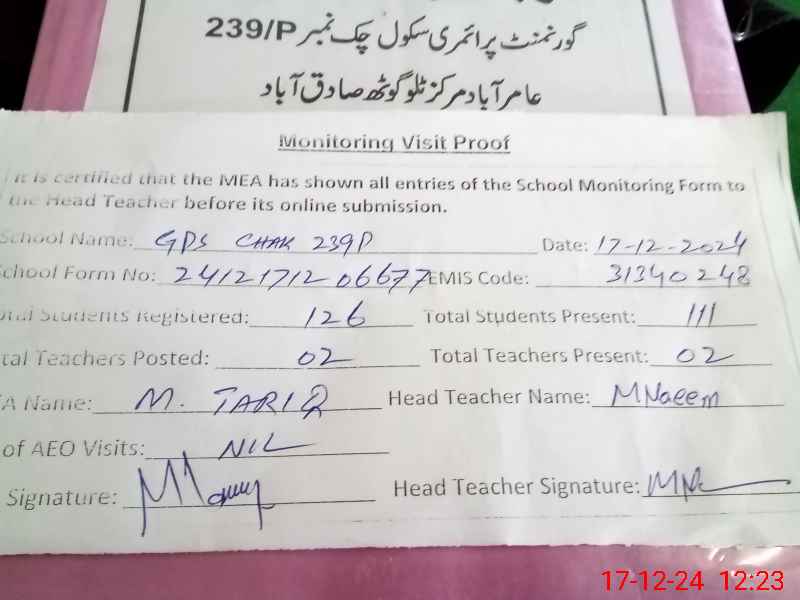 گورنمنٹ پرائمری سکول چک نمبر 239/P
عامر آباد مرکز ٹلو گوٹھ صادق آباد
Monitoring Visit Proof
It is certified that the MEA has shown all entries of the School Monitoring Form to
the Head Teacher before its online submission.
School Name: GPS CHAK 239P Date: 17-12-2024
School Form No: 2412171206677 EMIS Code: 31340248
otal Students Registered: 126 Total Students Present: 111
tal Teachers Posted: 02 Total Teachers Present: 02
A Name: M. TARIQ Head Teacher Name: MNaeem
of AEO Visits: NIL
Signature: Head Teacher Signature:
17-12-24 12:23